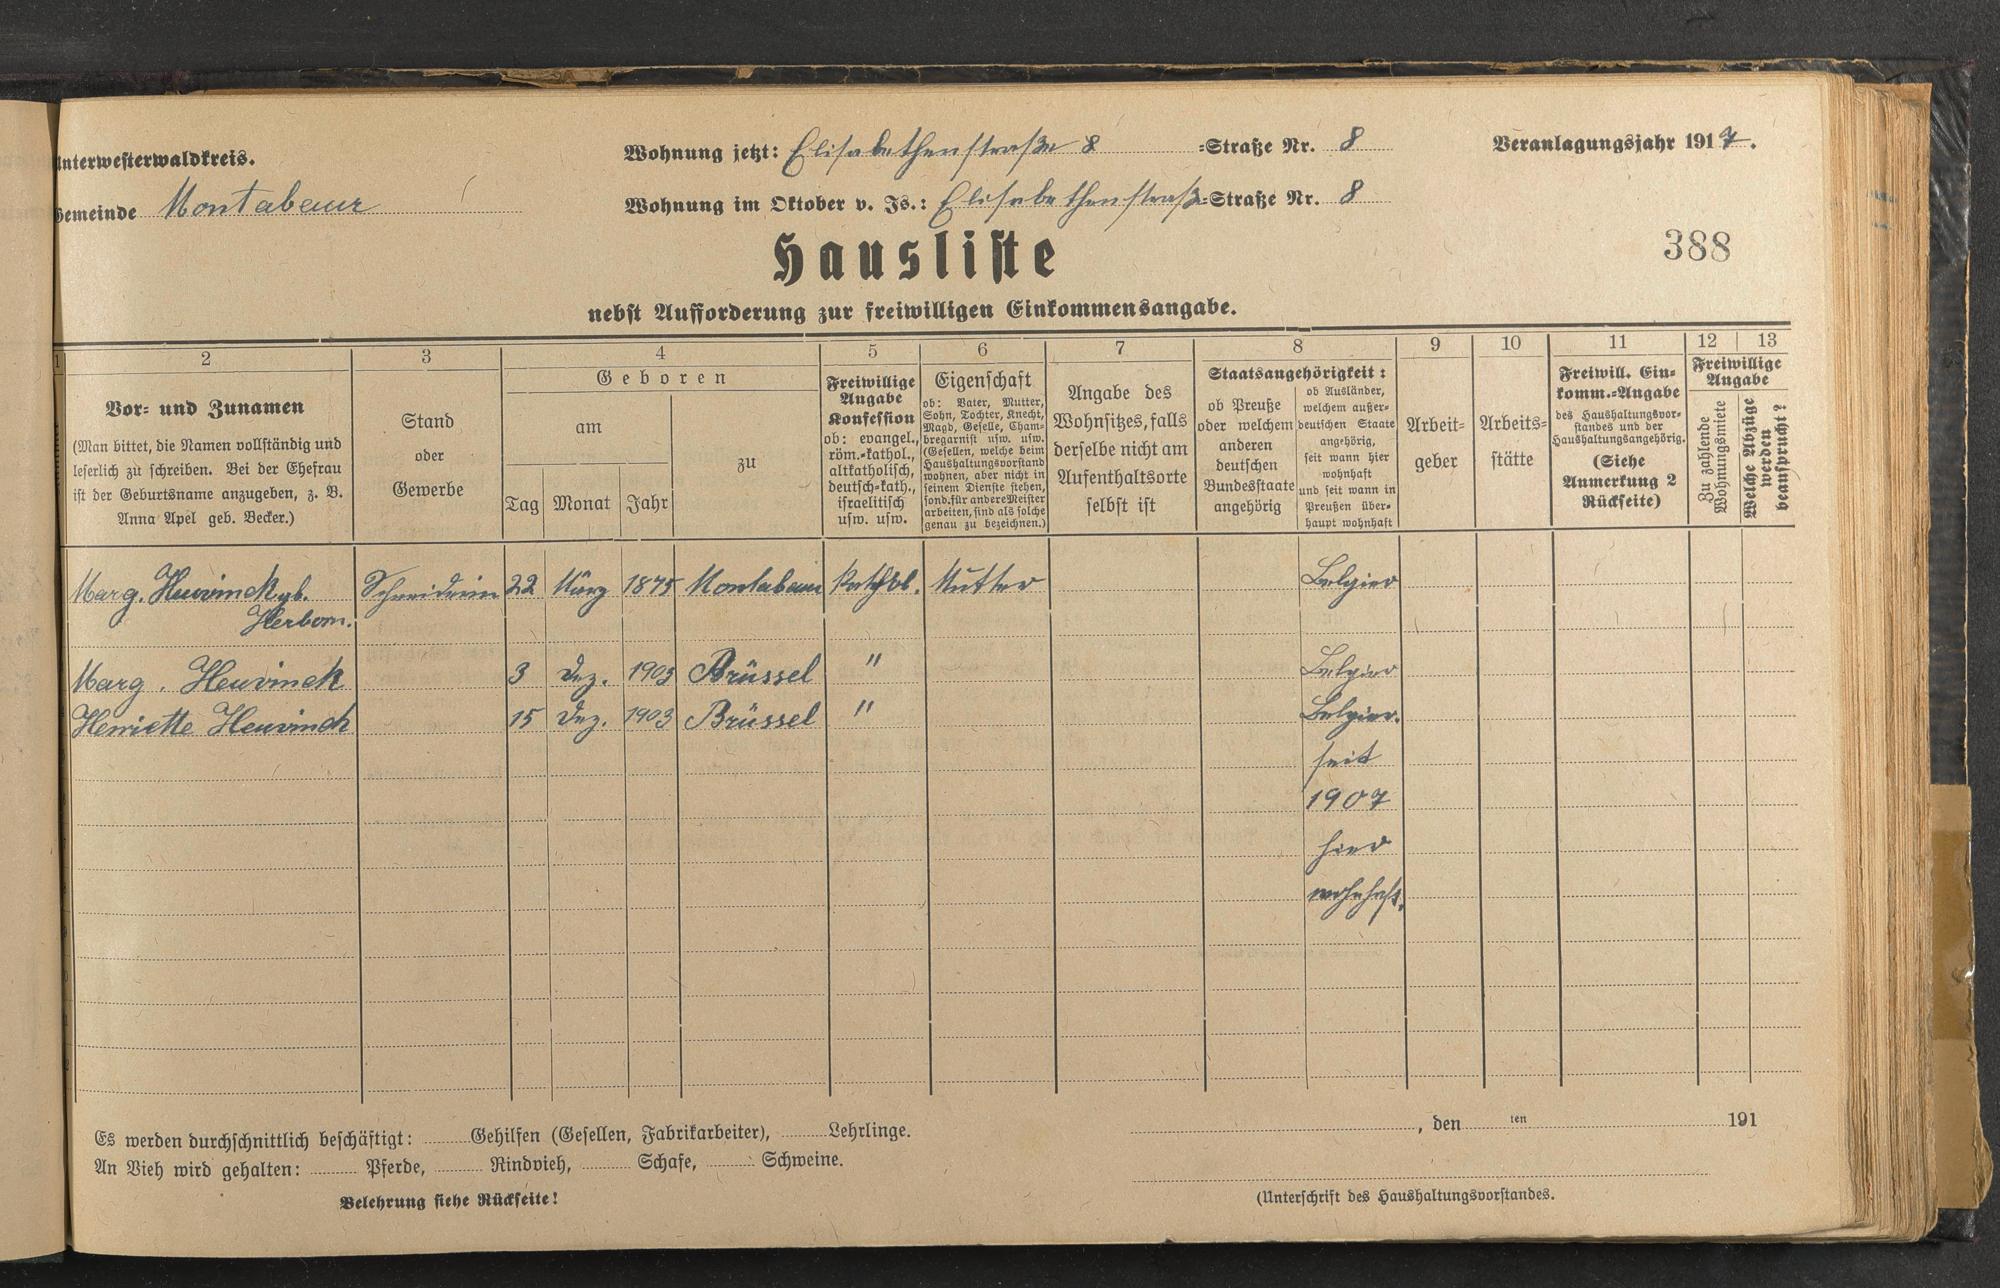 Unterwesterwaldkreis.
Wohnung jetzt: Elisabethenstraße 8 =Straße Nr. 8
Veranlagungsjahr 1917.
Gemeinde Montabaur
Wohnung im Oktober v. Js.: Elisabethenstraß=Straße Nr. 8
Hausliste
388
nebst Aufforderung zur freiwilligen Einkommensangabe.
1 2 3 4 5 6 7 8 9 10 11 12 13
Vor- und Zunamen
(Man bittet, die Namen vollständig und
leserlich zu schreiben. Bei der Ehefrau
ist der Geburtsname anzugeben, z. B.
Anna Apel geb. Becker.)
Stand
oder
Gewerbe
Geboren
am
Tag Monat Jahr
zu
Freiwillige
Angabe
Konfession
ob: evangel.,
röm.-kathol.,
altkatholisch,
deutsch-kath.,
israelitisch
usw. usw.
Eigenschaft
ob: Vater, Mutter,
Sohn, Tochter, Knecht,
Magd, Geselle, Cham-
bregarnist usw. usw.
(Gesellen, welche beim
Haushaltungsvorstand
wohnen, aber nicht in
seinem Dienste stehen,
sond. für andere Meister
arbeiten, sind als solche
genau zu bezeichnen.)
Angabe des
Wohnsitzes, falls
derselbe nicht am
Aufenthaltsorte
selbst ist
Staatsangehörigkeit:
ob Preuße
oder welchem
anderen
deutschen
Bundesstaate
angehörig
ob Ausländer,
welchem außer-
deutschen Staate
angehörig,
seit wann hier
wohnhaft
und seit wann in
Preußen über-
haupt wohnhaft
Arbeit-
geber
Arbeits-
stätte
Freiwill. Ein-
komm.-Angabe
des Haushaltungsvor-
standes und der
Haushaltungsangehörig.
(Siehe
Anmerkung 2
Rückseite)
Freiwillige
Angabe
Zu zahlende
Wohnungsmiete
Welche Abzüge
werden
beansprucht?
Marg. Heuvinck gb. Schneiderin 22 März 1875 Montabaur Kathol. Mutter Belgier
Herbom.
Marg. Heuvinck 3 Dez. 1903 Brüssel " Belgier
Henriette Heuvinck 15 Dez. 1903 Brüssel " Belgier.
seit
1907
hier
wohnhaft.
Es werden durchschnittlich beschäftigt: Gehilfen (Gesellen, Fabrikarbeiter), Lehrlinge.
, den ten 191
An Vieh wird gehalten: Pferde, Rindvieh, Schafe, Schweine.
Belehrung siehe Rückseite!
(Unterschrift des Haushaltungsvorstandes.